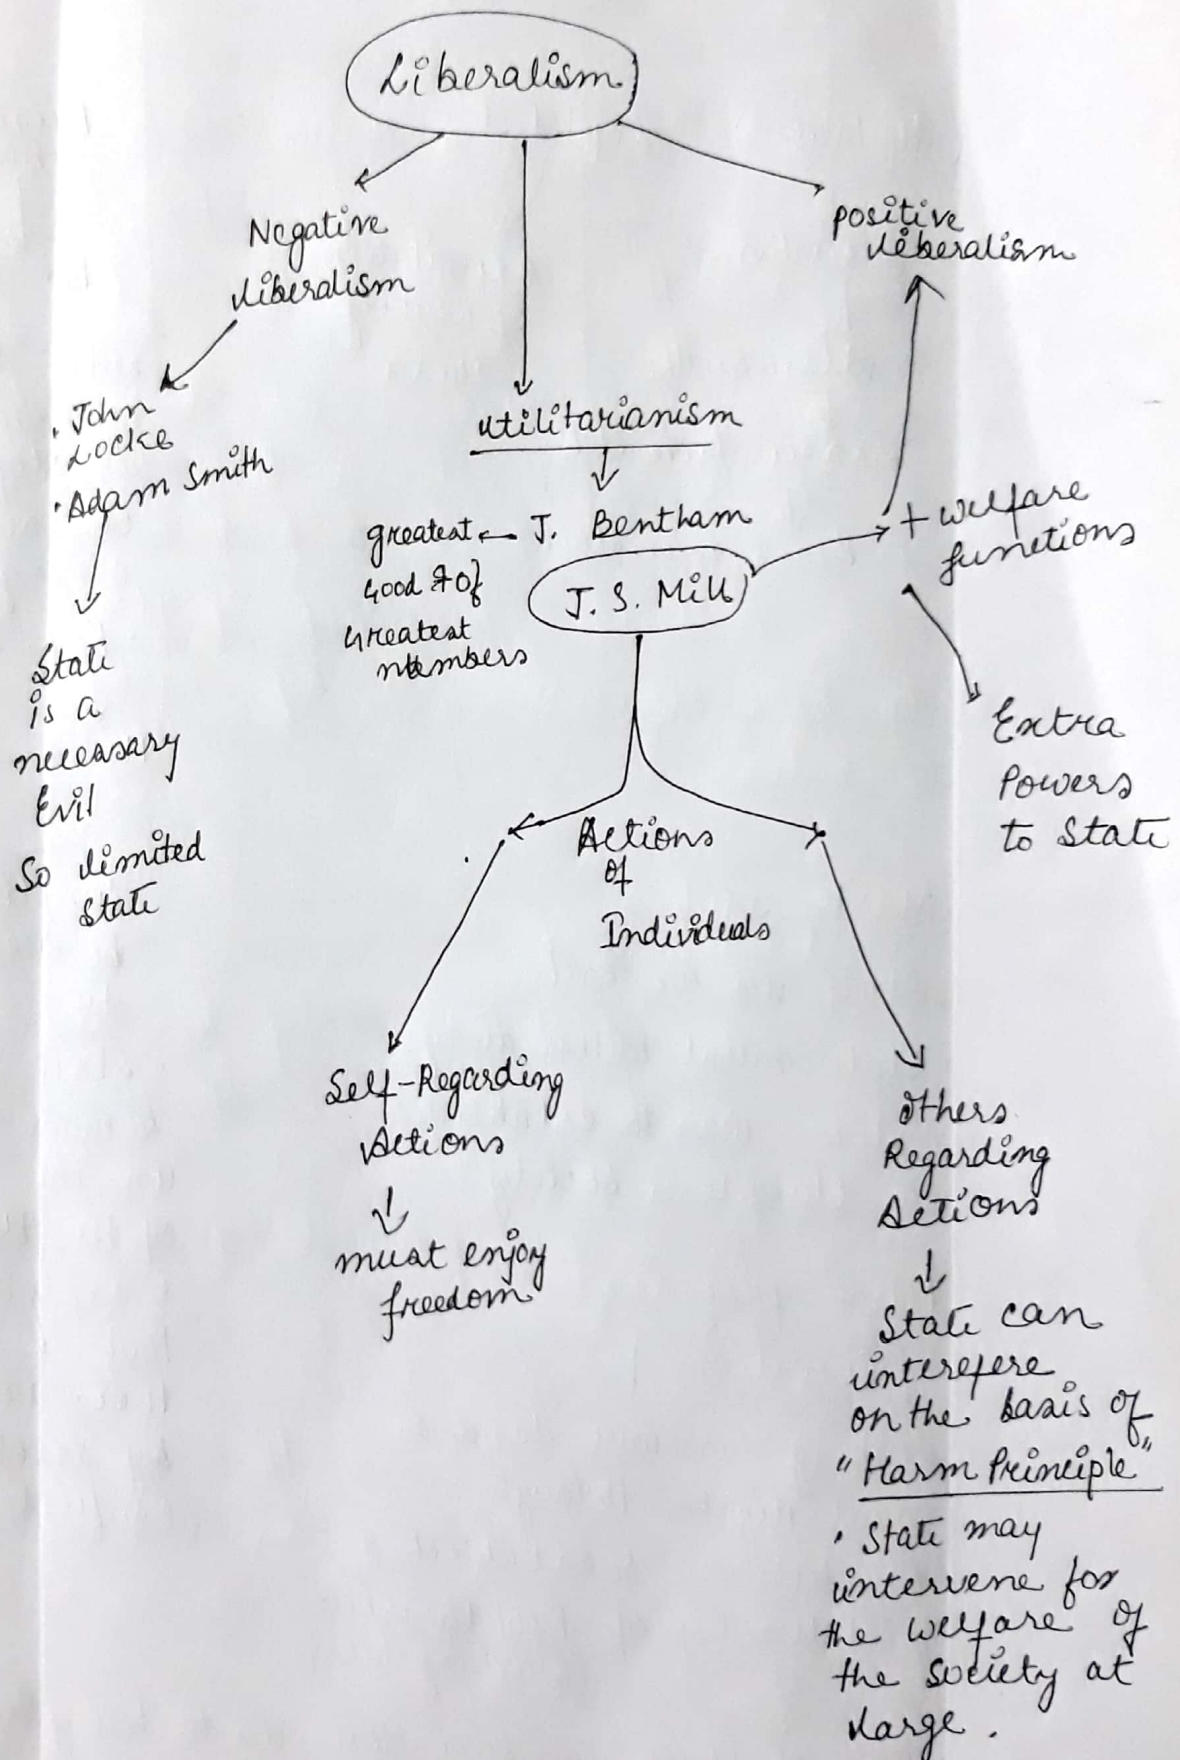 Liberalism
Negative
liberalism
positive
liberalism
. John
Locke
. Adam Smith
State
is a
necessary
Evil
So limited
State
utilitarianism
J. Bentham
greatest
Good of
Greatest
numbers
J. S. Mill
+ welfare
functions
Extra
Powers
to State
Actions
of
Individuals
Self-Regarding
Actions
must enjoy
freedom
Others
Regarding
Actions
State can
interefere
on the basis of
"Harm Principle"
. State may
intervene for
the welfare of
the society at
large.